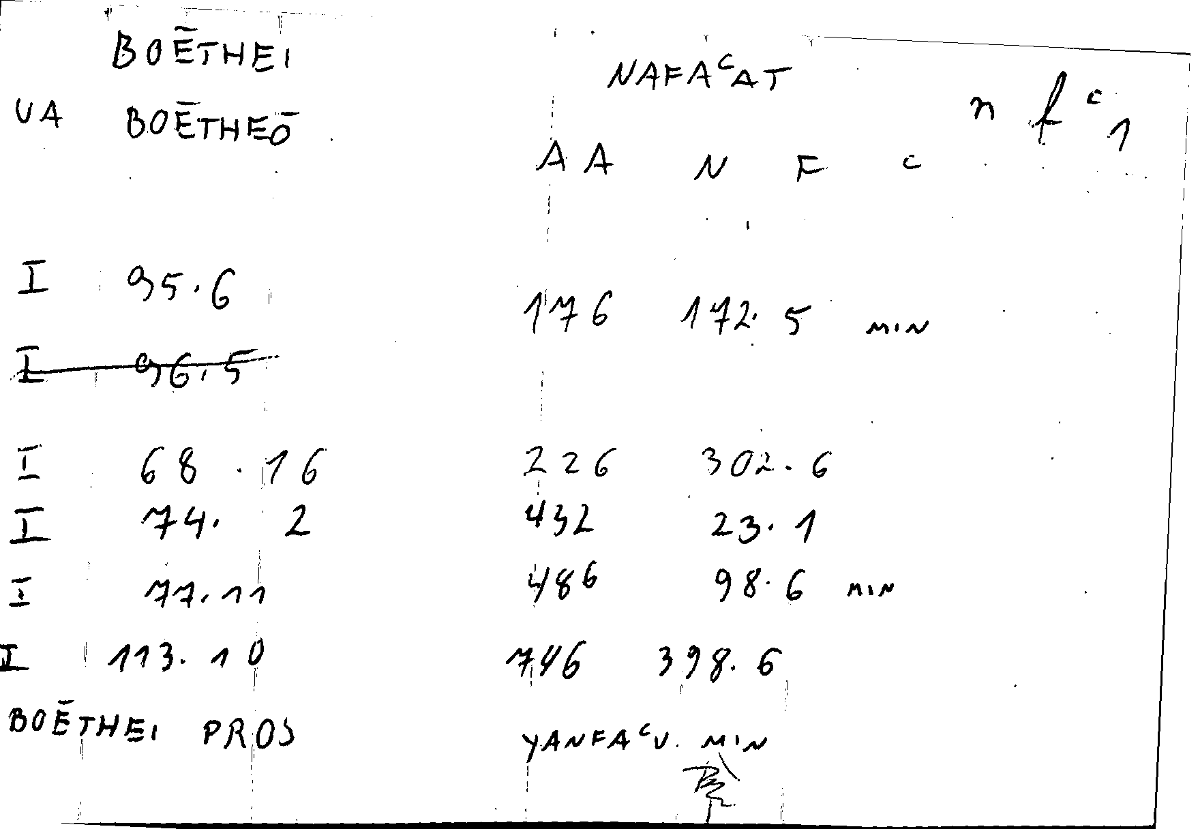 BOĒTHEI NAFAᶜAT
VA BOĒTHEŌ n f ᶜ 1
AA N F ᶜ
I 95.6 176 172.5 MIN
I 96.5
I 68.16 226 302.6
I 74. 2 432 23.1
I 77.11 486 98.6 MIN
I 113.10 746 398.6
BOĒTHEI PROS YANFAᶜU. MIN